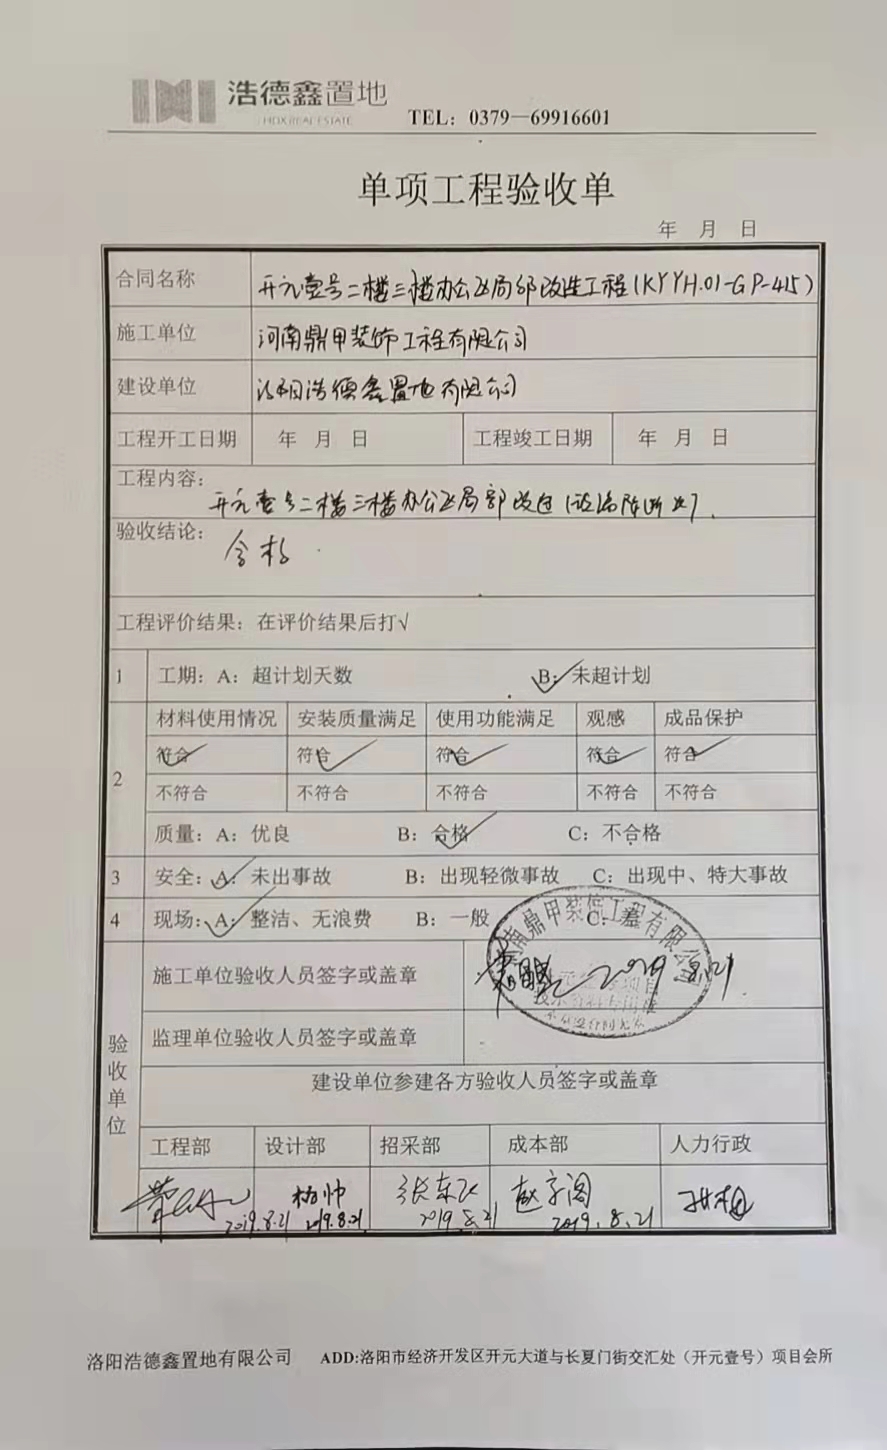 浩德鑫置地
HDX REAL ESTATE
TEL：0379—69916601
单项工程验收单
年 月 日
合同名称 开元壹号二楼三楼办公区局部改造工程(KYYH.01-GP-415)
施工单位 河南鼎甲装饰工程有限公司
建设单位 洛阳浩德鑫置地有限公司
工程开工日期 年 月 日 工程竣工日期 年 月 日
工程内容：
开元壹号二楼三楼办公区局部改造
验收结论：
合格
工程评价结果：在评价结果后打√
1 工期：A：超计划天数 B：未超计划
材料使用情况 安装质量满足 使用功能满足 观感 成品保护
符合 符合 符合 符合 符合
2
不符合 不符合 不符合 不符合 不符合
质量：A：优良 B：合格 C：不合格
3 安全：A：未出事故 B：出现轻微事故 C：出现中、特大事故
4 现场：A：整洁、无浪费 B：一般 C：差
河南鼎甲装饰工程有限公司
施工单位验收人员签字或盖章 2019.8.21
监理单位验收人员签字或盖章
验收单位
建设单位参建各方验收人员签字或盖章
工程部 设计部 招采部 成本部 人力行政
杨帅
2019.8.21 2019.8.21 2019.8.21 2019.8.21
洛阳浩德鑫置地有限公司 ADD:洛阳市经济开发区开元大道与长夏门街交汇处（开元壹号）项目会所